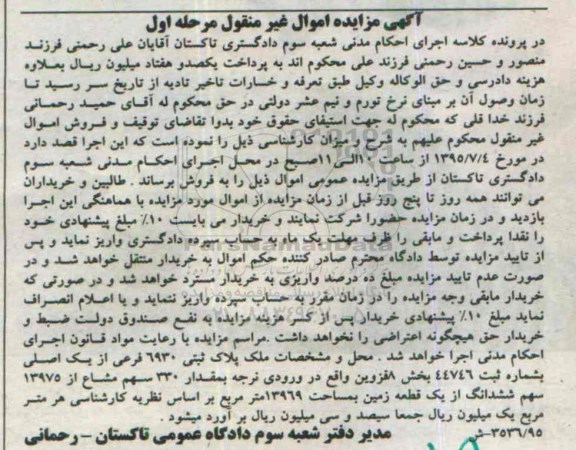 آگهی مزایده اموال غیر منقول مرحله اول
در پرونده کلاسه اجرای احکام مدنی شعبه سوم دادگستری تاکستان آقایان علی رحمنی فرزند
منصور و حسین رحمنی فرزند علی محکوم اند به پرداخت یکصدو هفتاد میلیون ریال بعلاوه
هزینه دادرسی و حق الوکاله وکیل طبق تعرفه و خسارات تاخیر تادیه از تاریخ سر رسید تا
زمان وصول آن بر مبنای نرخ تورم و نیم عشر دولتی در حق محکوم له آقای حمید رحمانی
فرزند خدا قلی که محکوم له جهت استیفای حقوق خود بدوا تقاضای توقیف و فروش اموال
غیر منقول محکوم علیهم به شرح و میزان کارشناسی ذیل را نموده است که این اجرا قصد دارد
در مورخ ۱۳۹۵/۷/۴ از ساعت ۱۰الی۱۱صبح در محل اجرای احکام مدنی شعبه سوم
دادگستری تاکستان از طریق مزایده عمومی اموال ذیل را به فروش برساند . طالبین و خریداران
می توانند همه روز تا پنج روز قبل از زمان مزایده از اموال مورد مزایده با هماهنگی این اجرا
بازدید و در زمان مزایده حضورا شرکت نمایند و خریدار می بایست ۱۰% مبلغ پیشنهادی خود
را نقدا پرداخت و مابقی را ظرف مهلت یک ماه به حساب سپرده دادگستری واریز نماید و پس
از تایید مزایده توسط دادگاه محترم صادر کننده حکم اموال به خریدار منتقل خواهد شد و در
صورت عدم تایید مزایده مبلغ ده درصد واریزی به خریدار مسترد خواهد شد و در صورتی که
خریدار مابقی وجه مزایده را در زمان مقرر به حساب سپرده واریز ننماید و یا اعلام انصراف
نماید مبلغ ۱۰% پیشنهادی خریدار پس از کسر هزینه مزایده به نفع صندوق دولت ضبط و
خریدار حق هیچگونه اعتراضی را نخواهد داشت .مراسم مزایده با رعایت مواد قانون اجرای
احکام مدنی اجرا خواهد شد . محل و مشخصات ملک پلاک ثبتی ۶۹۳۰ فرعی از یک اصلی
بشماره ثبت ۴۴۷۴۶ بخش ۸قزوین واقع در ورودی نرجه بمقدار ۳۳۰ سهم مشاع از ۱۳۹۷۵
سهم ششدانگ از یک قطعه زمین بمساحت ۱۳۹۶۹متر مربع بر اساس نظریه کارشناسی هر متر
مربع یک میلیون ریال جمعا سیصد و سی میلیون ریال بر آورد میشود .
۳۵۳۶/۹۵-ش مدیر دفتر شعبه سوم دادگاه عمومی تاکستان - رحمانی